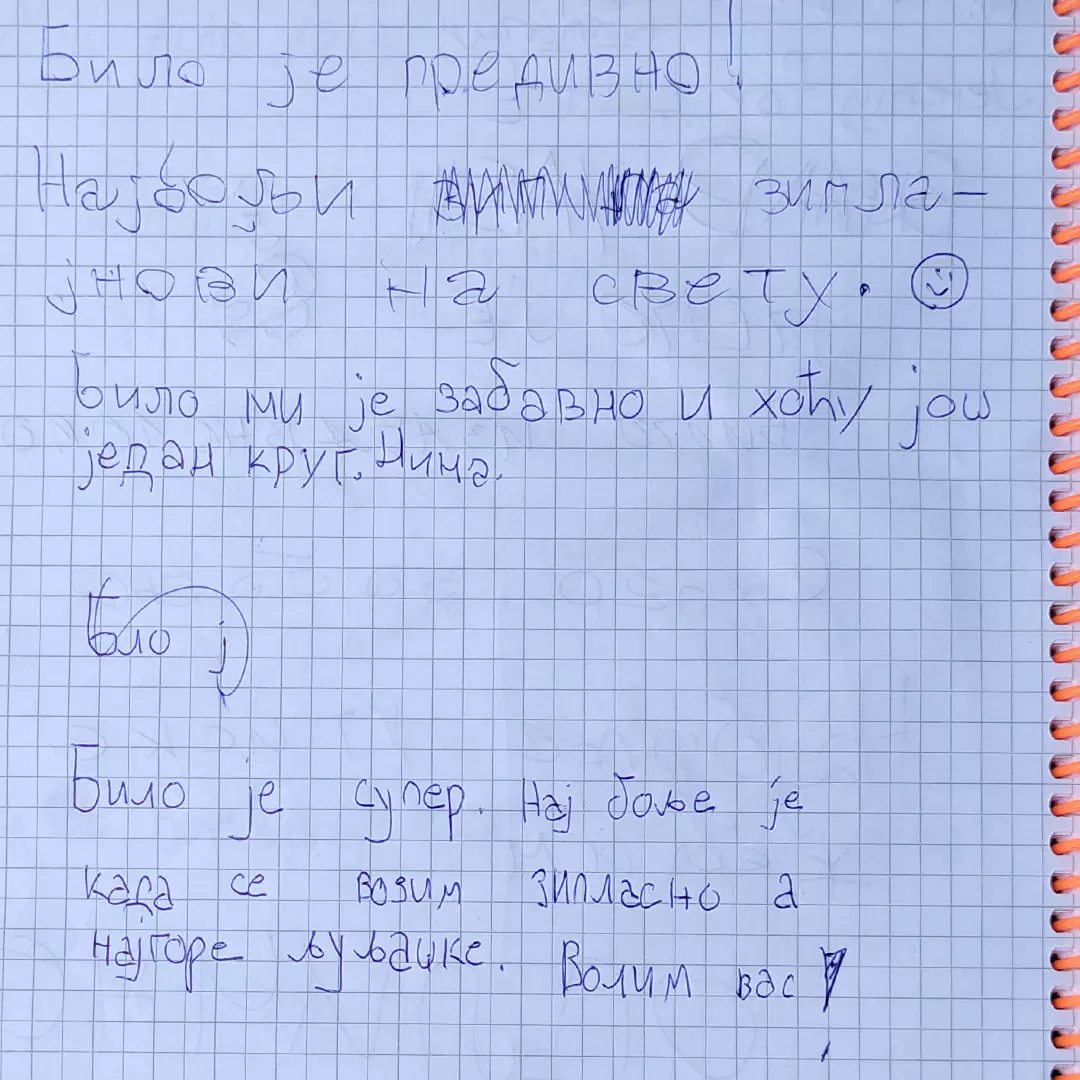 Било је предивно!
Најбољи зипла-
јнови на свету.
Било ми је забавно и хоћу још
један круг. Нина.
Бло ј
Било је супер. Нај боље је
када се возим зипласно а
најгоре љуљашке. Волим вас!